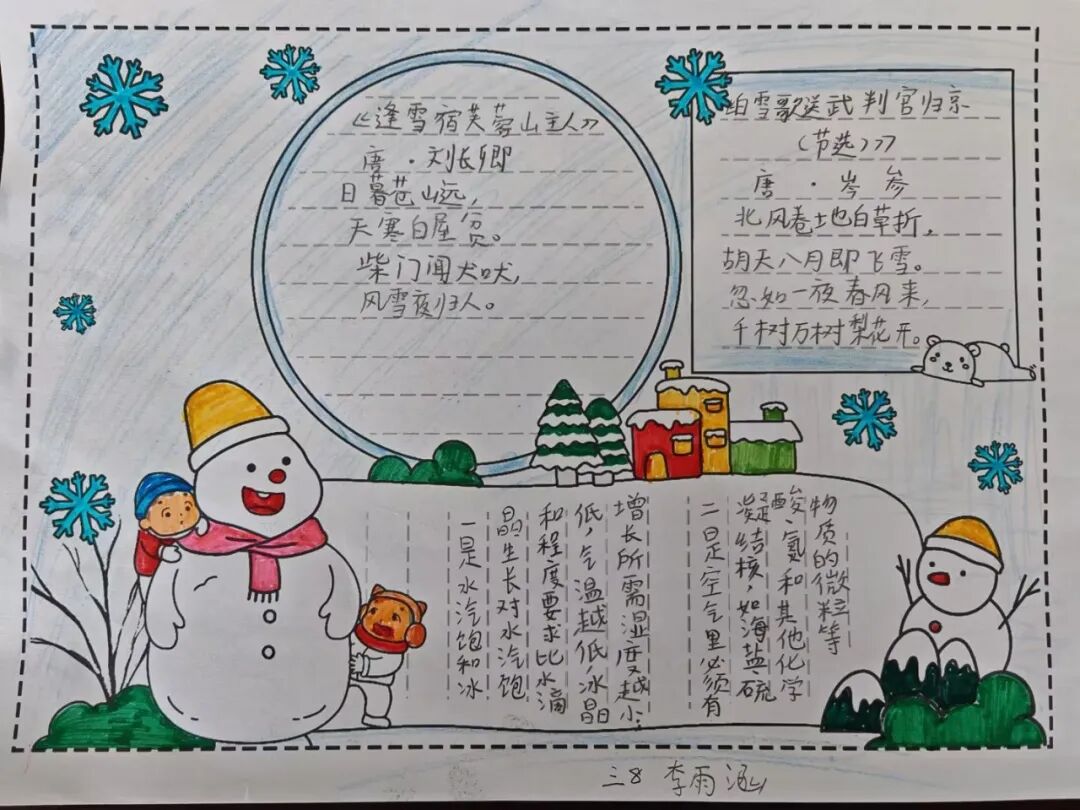 《逢雪宿芙蓉山主人》
唐·刘长卿
日暮苍山远，
天寒白屋贫。
柴门闻犬吠，
风雪夜归人。
白雪歌送武判官归京
（节选）》
唐·岑参
北风卷地白草折，
胡天八月即飞雪。
忽如一夜春风来，
千树万树梨花开。
一是水汽饱和冰
晶生长对水汽饱
和程度要求比水滴
低，气温越低，冰晶
增长所需湿度越小；
二是空气里必须有
凝结核，如海盐、硫
酸、氮和其他化学
物质的微粒等
三8 李雨涵